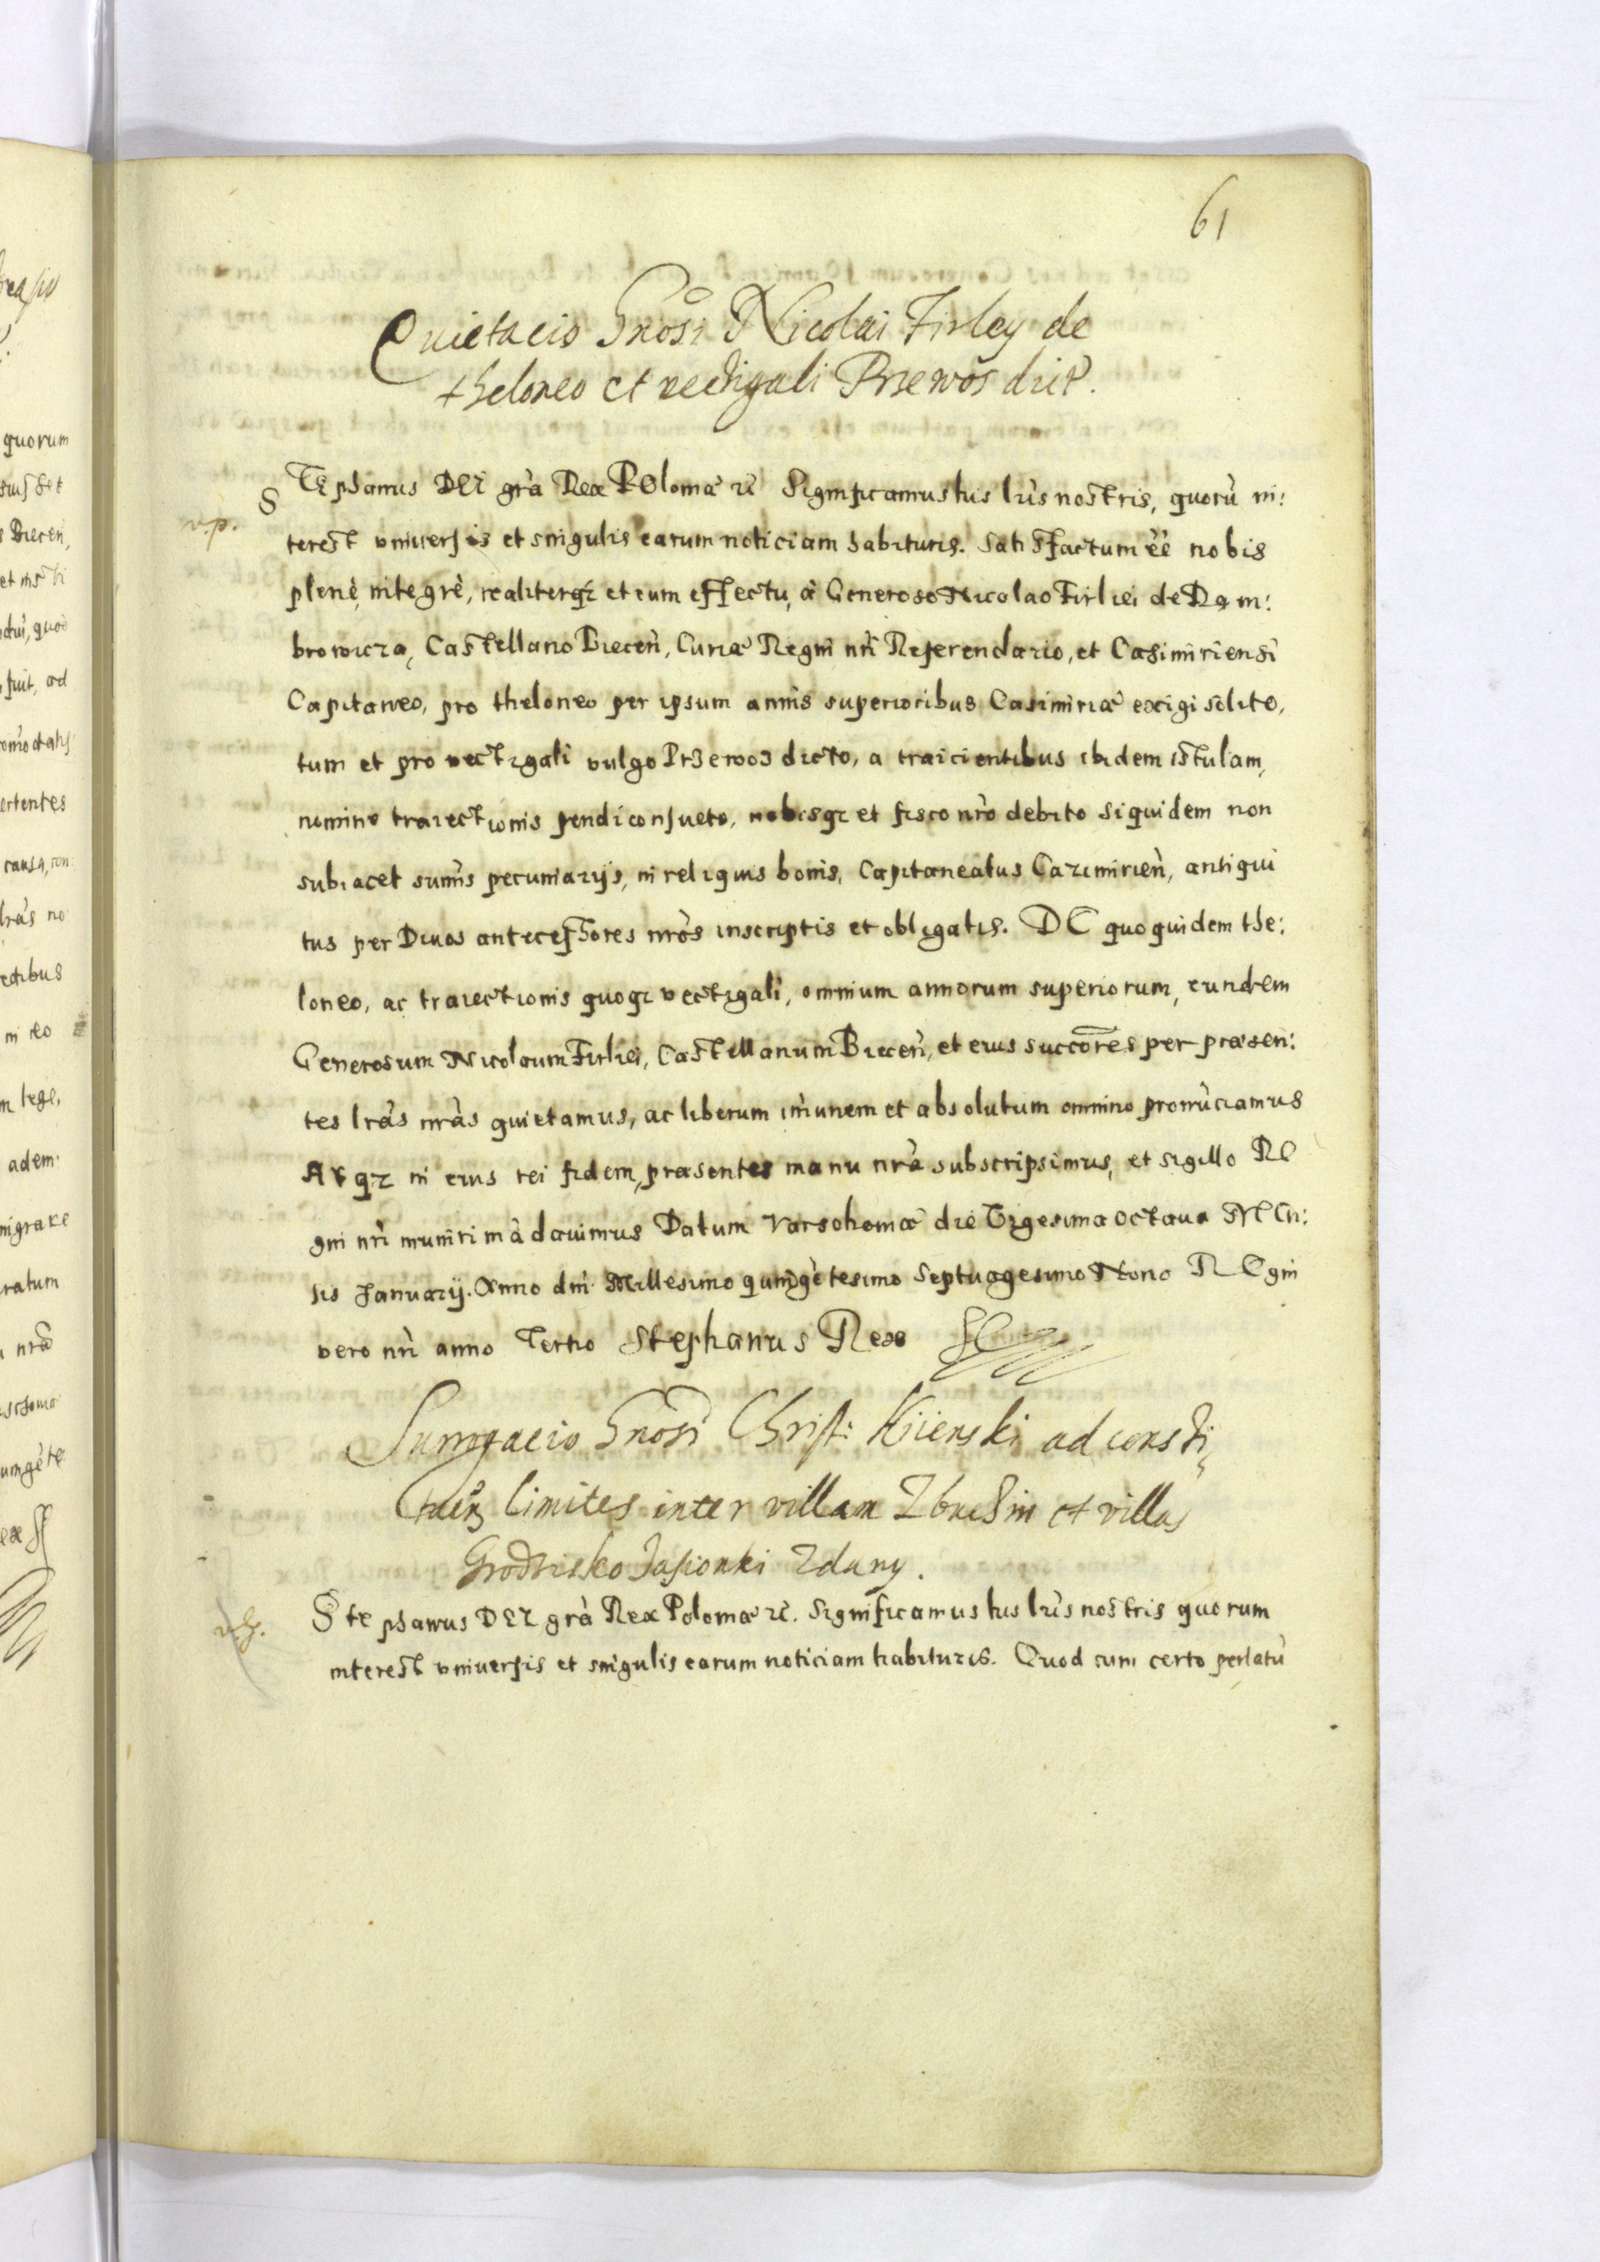 61
Quietacio Gnosi Nicolai Firley de
theloneo et vectigali Przewos dict.
v.p.
STEphanus DEI grà Rex POlomæ rc̃ Significamus his lrìs nostris, quorũ in:
terest vniuersis et singulis earum noticiam habituris. Satisfactum ẽẽ nobis
plenè, integrè, realiterqz et cum effectu, à Generoso Nicolao Firliei de Dam:
browicza, Castellano Biecen̄, Curiæ Regni nrĩ Referendario, et Casimiriensi
Capitaneo, pro theloneo per ipsum annis superioribus Casimiriæ exigi solito,
tum et pro vectigali vulgo Przewoz dicto, a traicientibus ibidem istulam,
nomine traiectionis pendi consueto, nobisqz et fisco nrõ debito siquidem non
subiacet sum̃is pecuniarijs, in reliquis bonis, Capitaneatus Cazimirien̄, antiqui
tus per Diuos antecessores nrõs inscriptis et obligatis. DE quo quidem the:
loneo, ac traiectionis quoqz vectigali, omnium annorum superiorum, eundem
Generosum Nicolaum Firliei, Castellanum Biecen̄, et eius succores per præsen:
tes lrãs nrãs quietamus, ac liberum im̃unem et absolutum omnino pronũciamus
Atqz in eius rei fidem, præsentes manu nrã subscripsimus, et sigillo RE
gni nrĩ muniri mãdauimus Datum Varsohomæ die Trigesima octaua MEn:
sis Januarij. Anno dnĩ Millesimo quingẽtesimo Septuagesimo Nono REgni
vero nrĩ anno Tertio Stephanus Rex
Surrogacio Gnosi Christ: Kijenski ad consti
tuen̄ limites inter villam Zbuchin et villas
Grodzisko Jasionki Zdany.
Stephanus DEI grà Rex Polomæ rc̃. Significamus his lrìs nostris quorum
interest vniuersis et singulis earum noticiam habituris. Quod cum certo perlatũ